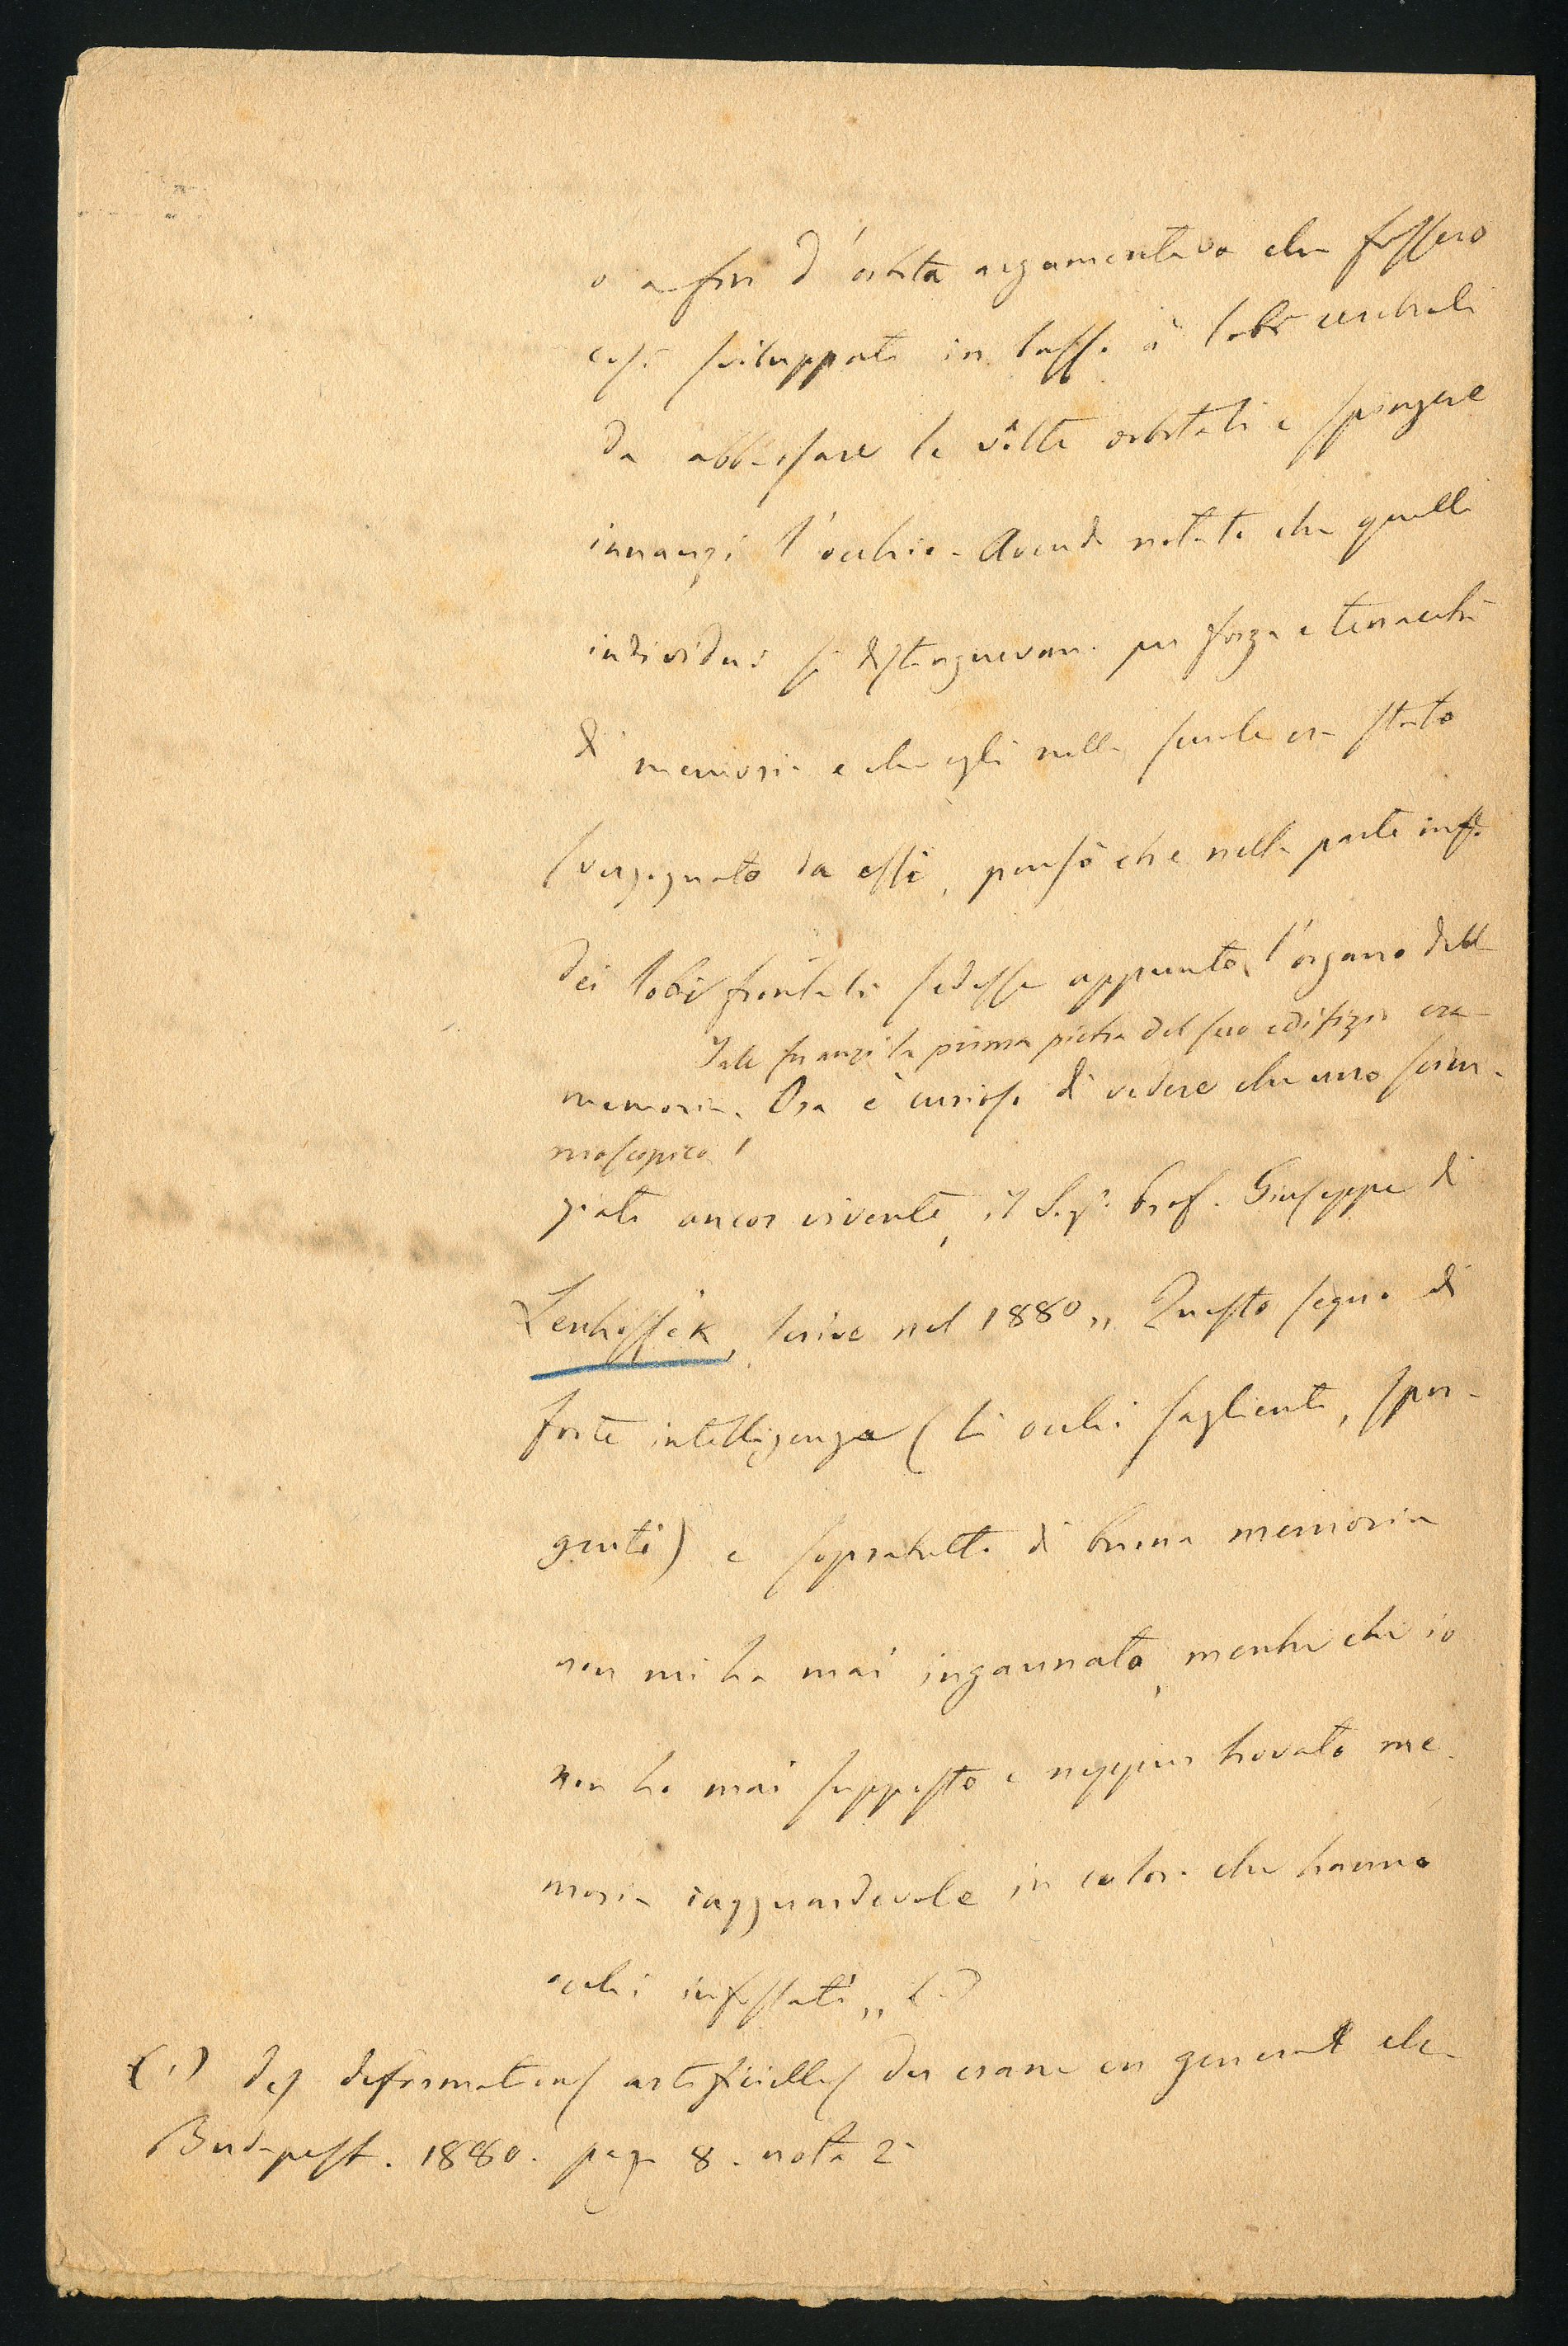 o a fior d'orbita argomentava che fossero
così sviluppati in basso i lobi cerebrali
da abbassare le vôlte orbitali e spingere
innanzi l'occhio. Avendo notato che quelli
individui si distinguevano per forza e tenacità
di memoria e che egli nelle scuole era stato
svergognato da essi, pensò che nella parte inf.e
dei lobi frontali sedesse appunto l'organo della
Tale fu anzi la prima pietra del suo edifizio cra-
memoria. Ora è curioso di vedere che uno scien-
nioscopico!
ziato ancor vivente, il Sig.r Prof. Giuseppe di
Lenhossék, scrive nel 1880 „ Questo segno di
forte intelligenza (li occhi saglienti, spor-
genti) e sopratutto di buona memoria
non mi ha mai ingannato, mentre che io
non ho mai supposto e neppur trovato me-
moria ragguardevole in coloro che hanno
occhi infossati „ (1)
(1) Des deformations artificielles du crane en general etc.
Budapest. 1880. pag. 8. nota 2a